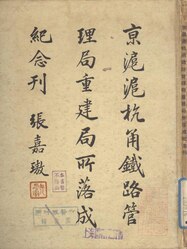 京滬滬杭甬鐵路管
理局重建局所落成
紀念刊 張嘉璈